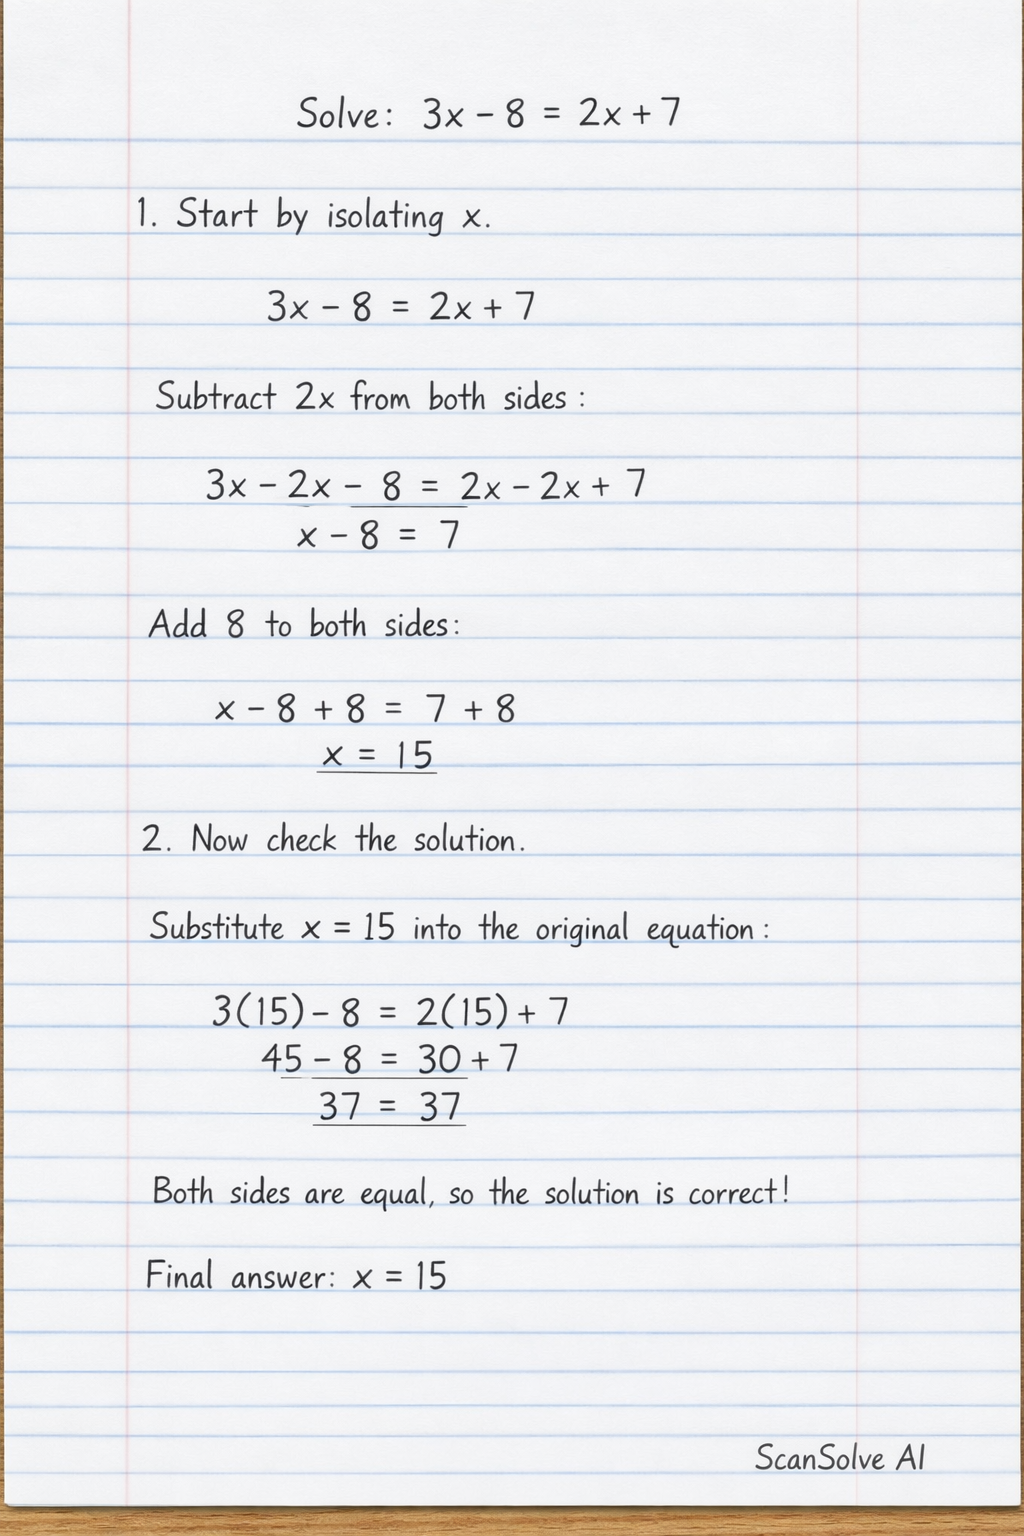 Solve: 3x - 8 = 2x + 7
1. Start by isolating x.
3x - 8 = 2x + 7
Subtract 2x from both sides :
3x - 2x - 8 = 2x - 2x + 7
x - 8 = 7
Add 8 to both sides:
x - 8 + 8 = 7 + 8
x = 15
2. Now check the solution.
Substitute x = 15 into the original equation :
3(15) - 8 = 2(15) + 7
45 - 8 = 30 + 7
37 = 37
Both sides are equal, so the solution is correct!
Final answer: x = 15
ScanSolve AI